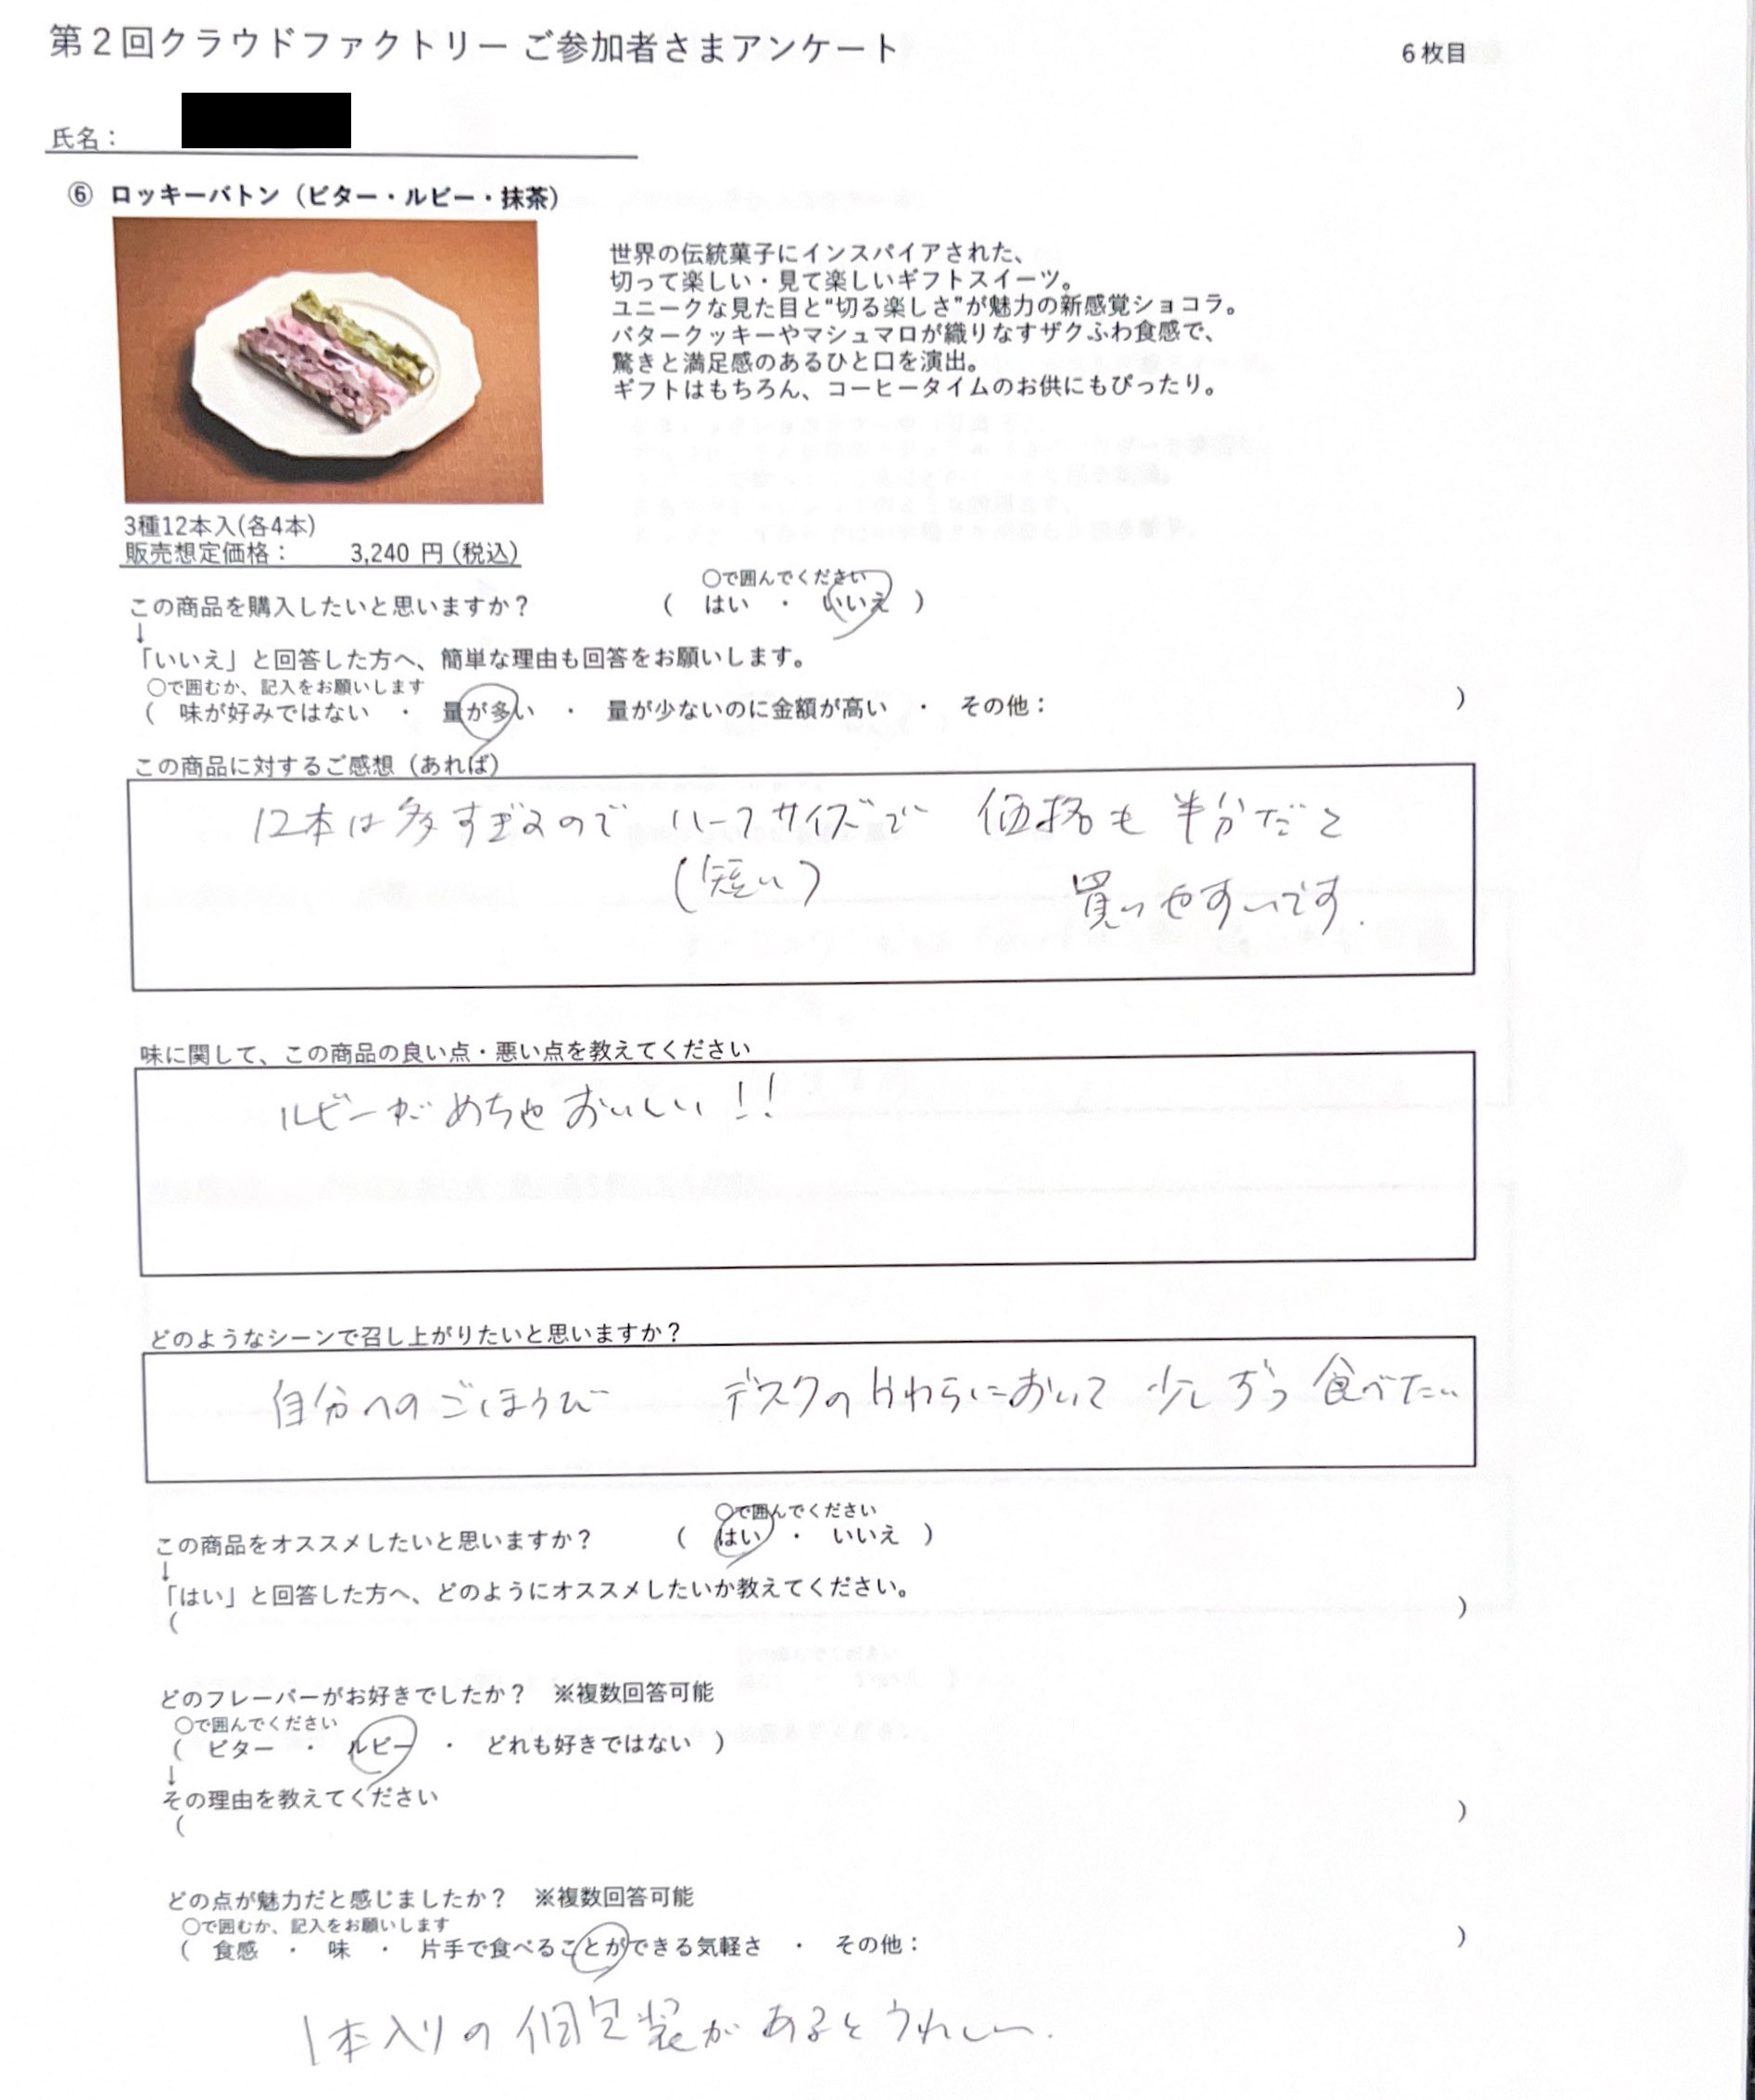 第2回クラウドファクトリー ご参加者さまアンケート
6枚目
氏名：
⑥ ロッキーバトン（ビター・ルビー・抹茶）
世界の伝統菓子にインスパイアされた、
切って楽しい・見て楽しいギフトスイーツ。
ユニークな見た目と“切る楽しさ”が魅力の新感覚ショコラ。
バタークッキーやマシュマロが織りなすザクふわ食感で、
驚きと満足感のあるひと口を演出。
ギフトはもちろん、コーヒータイムのお供にもぴったり。
3種12本入(各4本)
販売想定価格： 3,240 円 (税込)
〇で囲んでください
この商品を購入したいと思いますか？ （ はい ・ いいえ ）
↓
「いいえ」と回答した方へ、簡単な理由も回答をお願いします。
〇で囲むか、記入をお願いします
（ 味が好みではない ・ 量が多い ・ 量が少ないのに金額が高い ・ その他： ）
この商品に対するご感想（あれば）
12本は多すぎるので ハーフサイズで 価格も 半分だと
（短い） 買いやすいです.
味に関して、この商品の良い点・悪い点を教えてください
ルビーがめちゃおいしい!!
どのようなシーンで召し上がりたいと思いますか？
自分へのごほうび デスクのかたわらにおいて 少しずつ 食べたい
〇で囲んでください
この商品をオススメしたいと思いますか？ （ はい ・ いいえ ）
↓
「はい」と回答した方へ、どのようにオススメしたいか教えてください。
（ ）
どのフレーバーがお好きでしたか？ ※複数回答可能
〇で囲んでください
（ ビター ・ ルビー ・ どれも好きではない ）
↓
その理由を教えてください
（ ）
どの点が魅力だと感じましたか？ ※複数回答可能
〇で囲むか、記入をお願いします
（ 食感 ・ 味 ・ 片手で食べることができる気軽さ ・ その他： ）
1本入りの個包装があるとうれしい.